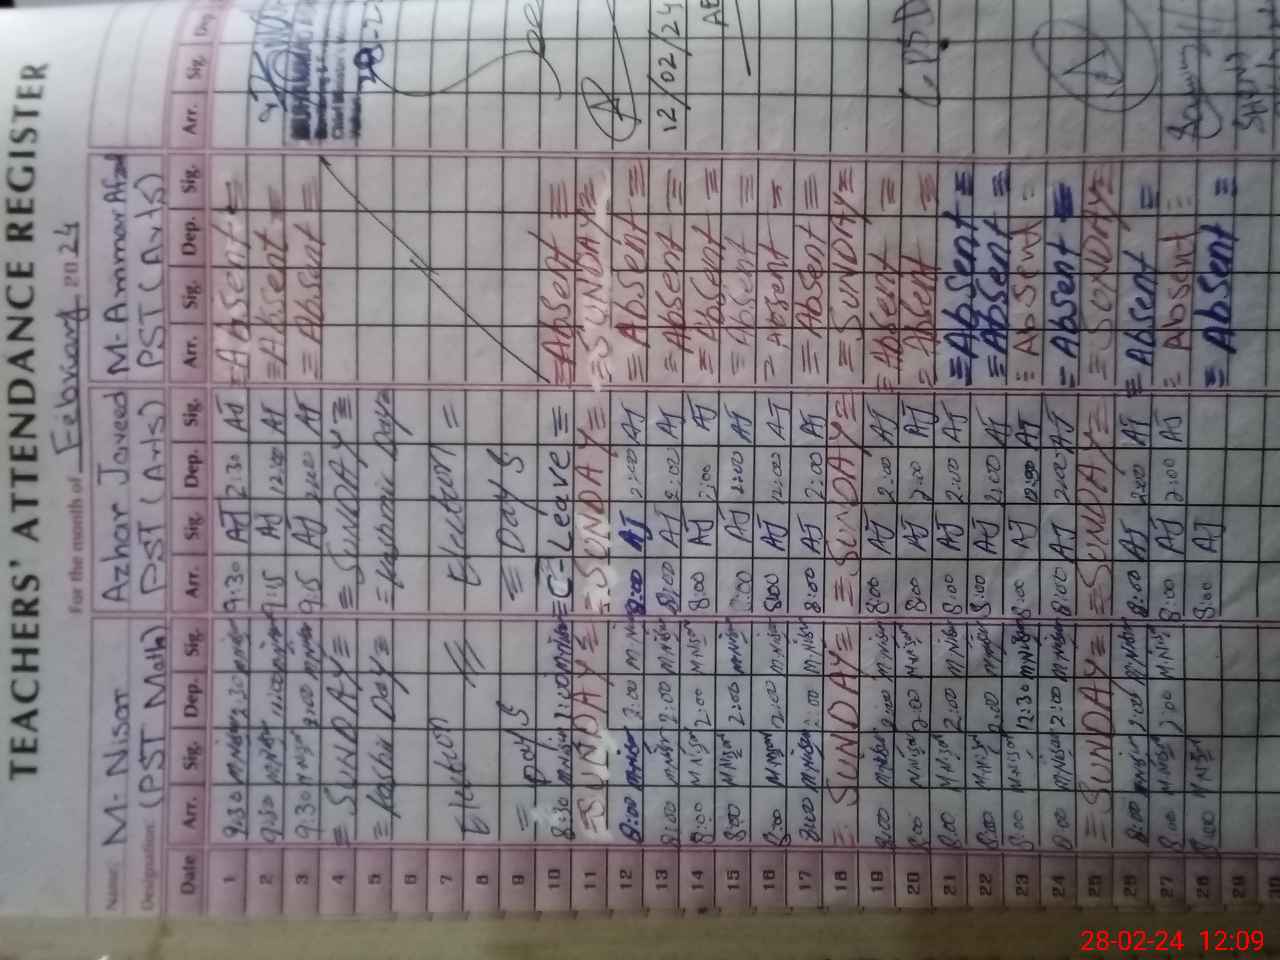 TEACHERS' ATTENDANCE REGISTER
For the month of February 2024
Name: M. Nisar Azhar Javeed M. Ammar Afzal
Designation: (PST Math) PST (Arts) PST (Arts)
Date Arr. Sig. Dep. Sig. Arr. Sig. Dep. Sig. Arr. Sig. Dep. Sig. Arr. Sig. Dep.
1 9:30 M.Nisar 2:30 M.Nisar 9:30 AJ 2:30 AJ = Absent =
2 9:30 M.Nisar 12:00 M.Nisar 9:15 AJ 12:00 AJ = Absent =
3 9:30 M.Nisar 2:00 M.Nisar 9:15 AJ 2:00 AJ = Absent =
4 = SUNDAY = = SUNDAY =
5 = Kashmir Day = = Kashmir Day =
6
7 Election Election =
8
9 = Days = Days
10 8:30 M.Nisar 2:00 M.Nisar = C-Leave = = Absent =
11 = SUNDAY = = SUNDAY = = SUNDAY =
12 8:00 M.Nisar 2:00 M.Nisar 8:00 AJ 2:00 AJ = Absent =
13 8:00 M.Nisar 2:00 M.Nisar 8:00 AJ 2:00 AJ = Absent = 12/02/24
14 8:00 M.Nisar 2:00 M.Nisar 8:00 AJ 2:00 AJ = Absent =
15 8:00 M.Nisar 2:00 M.Nisar 8:00 AJ 2:00 AJ = Absent =
16 8:00 M.Nisar 12:00 M.Nisar 8:00 AJ 12:00 AJ = Absent =
17 8:00 M.Nisar 2:00 M.Nisar 8:00 AJ 2:00 AJ = Absent =
18 = SUNDAY = = SUNDAY = = SUNDAY =
19 8:00 M.Nisar 2:00 M.Nisar 8:00 AJ 2:00 AJ = Absent =
20 8:00 M.Nisar 2:00 M.Nisar 8:00 AJ 2:00 AJ = Absent =
21 8:00 M.Nisar 2:00 M.Nisar 8:00 AJ 2:00 AJ = Absent =
22 8:00 M.Nisar 2:00 M.Nisar 8:00 AJ 2:00 AJ = Absent =
23 8:00 M.Nisar 12:30 M.Nisar 8:00 AJ 12:30 AJ = Absent =
24 8:00 M.Nisar 2:00 M.Nisar 8:00 AJ 2:00 AJ = Absent =
25 = SUNDAY = = SUNDAY = = SUNDAY =
26 8:00 M.Nisar 2:00 M.Nisar 8:00 AJ 2:00 AJ = Absent =
27 8:00 M.Nisar 2:00 M.Nisar 8:00 AJ 2:00 AJ = Absent =
28 8:00 M.Nisar 8:00 AJ = Absent =
29
30
28-02-24 12:09